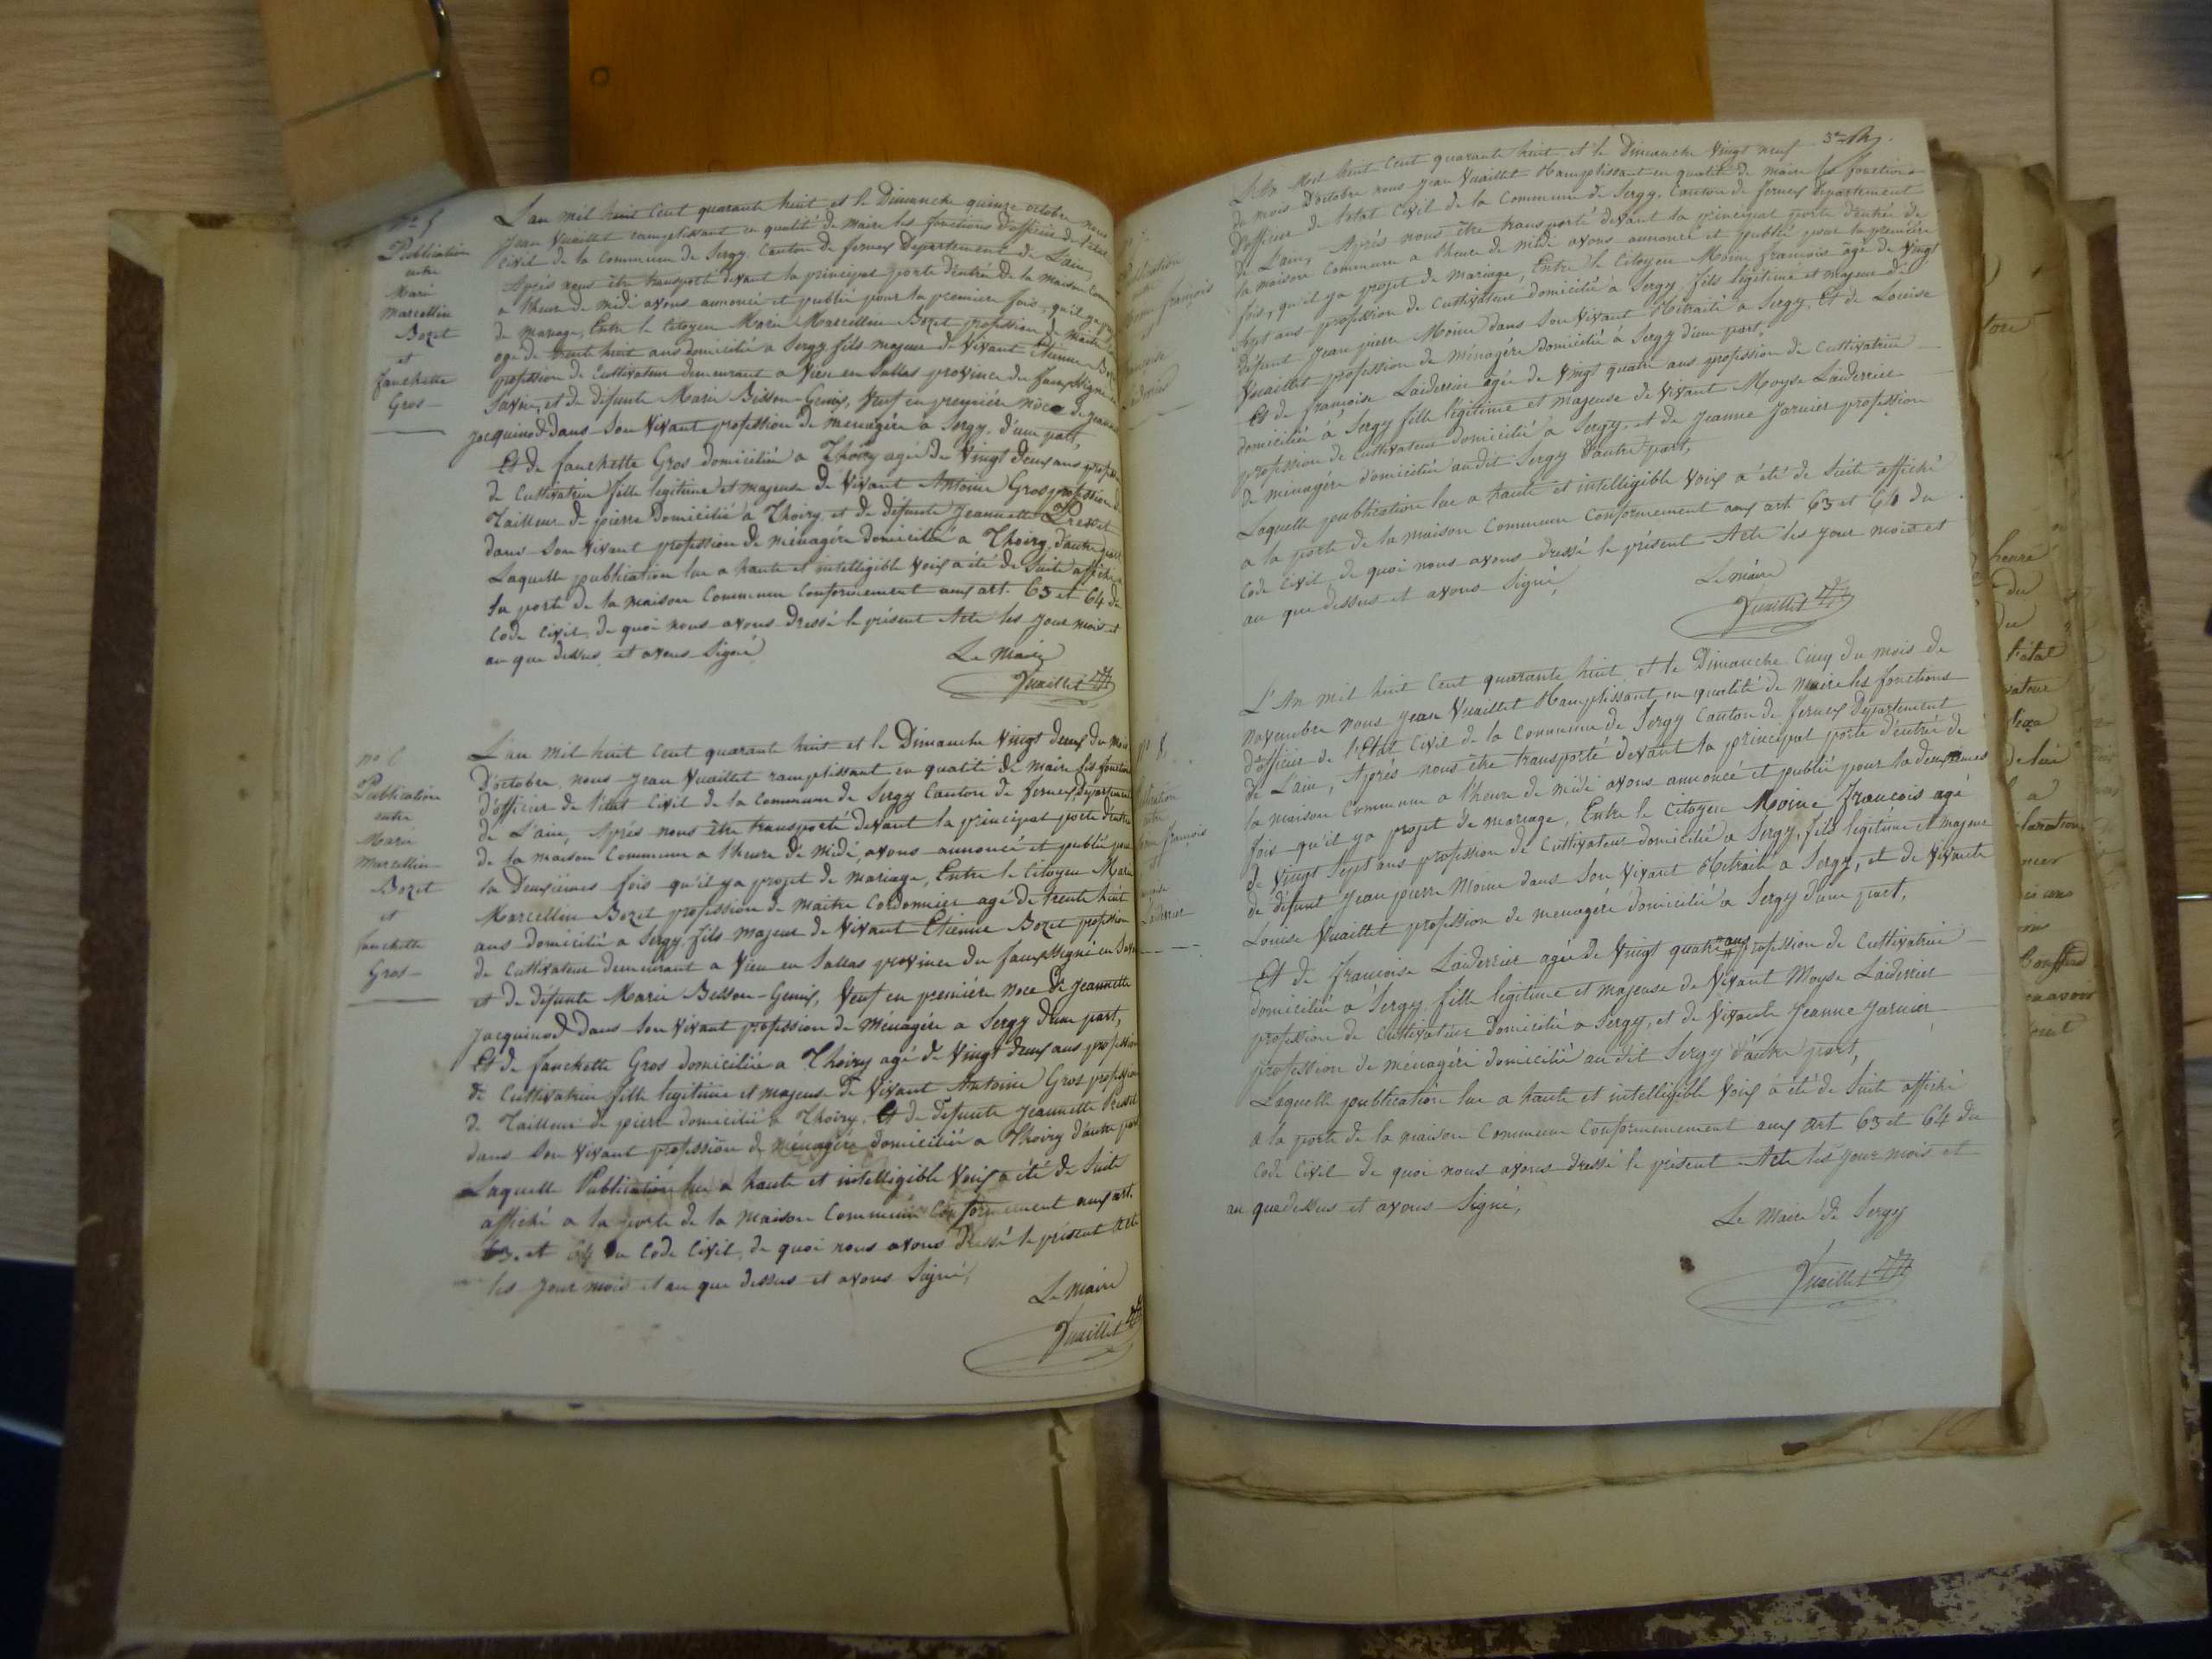 nº 5
Publication
entre
Marie
Marcellin
Bozet
et
fanchette
Gros
L'an mil huit Cent quarante huit et le Dimanche quinze octobre nous
Jean Vuaillet ramplissant en qualité de maire les fonctions d'officier de l'état
Civil de la Commune de Sergy, Canton de ferney Departement de L'ain,
Après nous être transporté devant la principal porte d'entré de la maison Commune
a l'heure de midi avons annoncé et publié pour la premiere fois, qu'il ya
de mariage, Entre le Citoyen Marie Marcellin Bozet profession de maitre
agé de trente huit ans domicilié a Sergy fils majeur de Vivant Etienne
profession de Cultivateur demeurant a Vieu en Sallas province du faussigné en
Savoie, et de défunte Marie Besson-Genix, Veuf en première noce de Jeannette
Jacquinod dans Son Vivant profession de menagére a Sergy, d'une part,
Et de fanchette Gros domiciliée a Thoiry agée de Vingt deux ans profession
de Cultivatrice fille legitime et majeure de Vivant Antoine Gros profession de
Tailleur de pierre Domicilié à Thoiry, et de défunte Jeannette Presset
dans Son Vivant profession de menagére domicilié a Thoiry, d'autre part
Laquelle publication lue a haute et intelligible Voix a été de Suite affiché a
la porte de la maison Commune Conformement aux art. 63 et 64 du
Code Civil, de quoi nous avons dressé le présent Acte les jour mois et
an que dessus, et avons Signé
Le Maire
Vuaillet
nº 6
Publication
entre
Marie
Marcellin
Bozet
et
fanchette
Gros
L'an mil huit Cent quarante huit et le Dimanche Vingt deux du mois
D'octobre, nous Jean Vuaillet ramplissant en qualité de maire les fonctions
d'officier de l'état Civil de la Commune de Sergy Canton de ferney, Departement
de L'ain, Après nous être transporté devant la principal porte d'entré
de la maison Commune a l'heure de Midi, avons annoncé et publié pour
la Deuxièmes fois qu'il ya projet de mariage, Entre le Citoyen Marie
Marcellin Bozet profession de Maitre Cordonnier agé de trente huit
ans domicilié a Sergy, fils majeur de Vivant Etienne Bozet profession
de Cultivateur demeurant a Vieu en Sallas province du faussigné en Savoie
et de défunte Marie Besson-Genix, Veuf en première noce de Jeannette
Jacquinod dans Son Vivant profession de Ménagére a Sergy d'une part,
Et de fanchette Gros domiciliée a Thoiry agé de Vingt deux ans profession
de Cultivatrice fille legitime et majeure de Vivant Antoine Gros profession
de Tailleur de pierre domicilié a Thoiry, Et de defunte Jeannette Presset
dans Son Vivant profession de ménagére domicilié a Thoiry d'autre part
Laquelle Publication lue a haute et intelligible Voix a été de Suite
affiché a la porte de la maison Commune Conformement aux art.
63. et 64 du Code Civil, de quoi nous avons dressé le présent acte
les jour mois et an que dessus et avons Signé,
Le Maire
Vuaillet
françois
L'An Mil huit Cent quarante huit et le Dimanche Vingt neuf
de mois D'octobre nous Jean Vuaillet Ramplissant en qualité de maire les fonctions
d'officier de l'état Civil de la Commune de Sergy, Canton de ferney Departement
de L'ain, Après nous être transporté devant la principal porte d'entrée de
la maison Commune a l'heure de midi avons annoncé et publié pour la première
fois, qu'il ya projet de mariage, Entre le Citoyen Moine francois âgé de Vingt
Sept ans profession de Cultivateur domicilié à Sergy fils legitime et majeur de
défunt Jean pierre Moine dans Son Vivant Rétraité a Sergy, Et de Louise
Vuaillet profession de ménagére domicilié à Sergy d'une part,
Et de françoise Laiderrier agée de Vingt quatre ans profession de Cultivatrice
domiciliée à Sergy fille legitime et majeure de Vivant Moyse Laiderrier
profession de Cultivateur domicilié a Sergy, et de Jeanne Jarnier profession
de ménagére domiciliée audit Sergy d'autre part,
Laquelle publication lue a haute et intelligible Voix a été de Suite affiché
a la porte de la maison Commune Conformement aux art. 63 et 64 du
Code Civil, de quoi nous avons dressé le présent Acte les jour mois et
an que dessus et avons Signé,
Le Maire
Vuaillet
L'An mil huit Cent quarante huit et le Dimanche Cinq du mois de
November nous Jean Vuaillet Ramplissant en qualité de Maire les fonctions
d'officier de l'Etat Civil de la Commune de Sergy Canton de ferney Departement
de L'ain, Après nous être transporté devant la principal porte d'entré de
la maison Commune a l'heure de midi avons annoncé et publié pour la deuxièmes
fois qu'il ya projet de mariage, Entre le Citoyen Moine Francois agé
de Vingt Sept ans profession de Cultivateur domicilié a Sergy, fils legitime et majeur
de défunt Jean pierre Moine dans Son Vivant Rétraité a Sergy, et de Vivante
Louise Vuaillet profession de menagére domicilié a Sergy d'une part,
Et de francoise Laiderrier agée de Vingt quatre ans profession de Cultivatrice
domiciliée a Sergy, fille legitime et majeure de Vivant Moyse Laiderrier
profession de Cultivateur domicilié a Sergy, et de Vivante Jeanne Jarnier
profession de ménagére domicilié au dit Sergy d'autre part,
Laquelle publication lue a haute et intelligible Voix a été de Suite affiché
a la porte de la maison Commune Conformement aux art 63 et 64 du
Code Civil de quoi nous avons dressé le présent Acte les jour mois et
an que dessus et avons Signé,
Le Maire de Sergy
Vuaillet